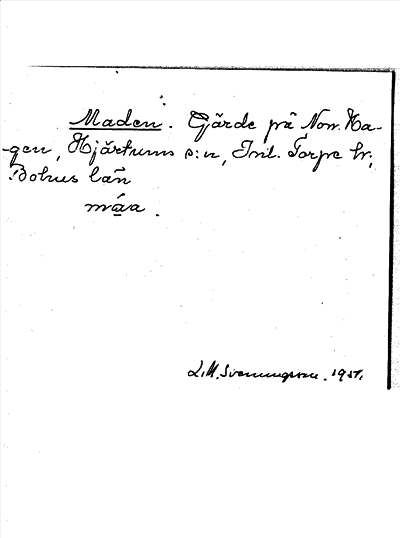 Maden. Gärde på Norr. Ha-
gen, Hjärtums s:n, Inl. Torpe hr,
Bohus län
måa.
L. M. Svenungsson. 1951.